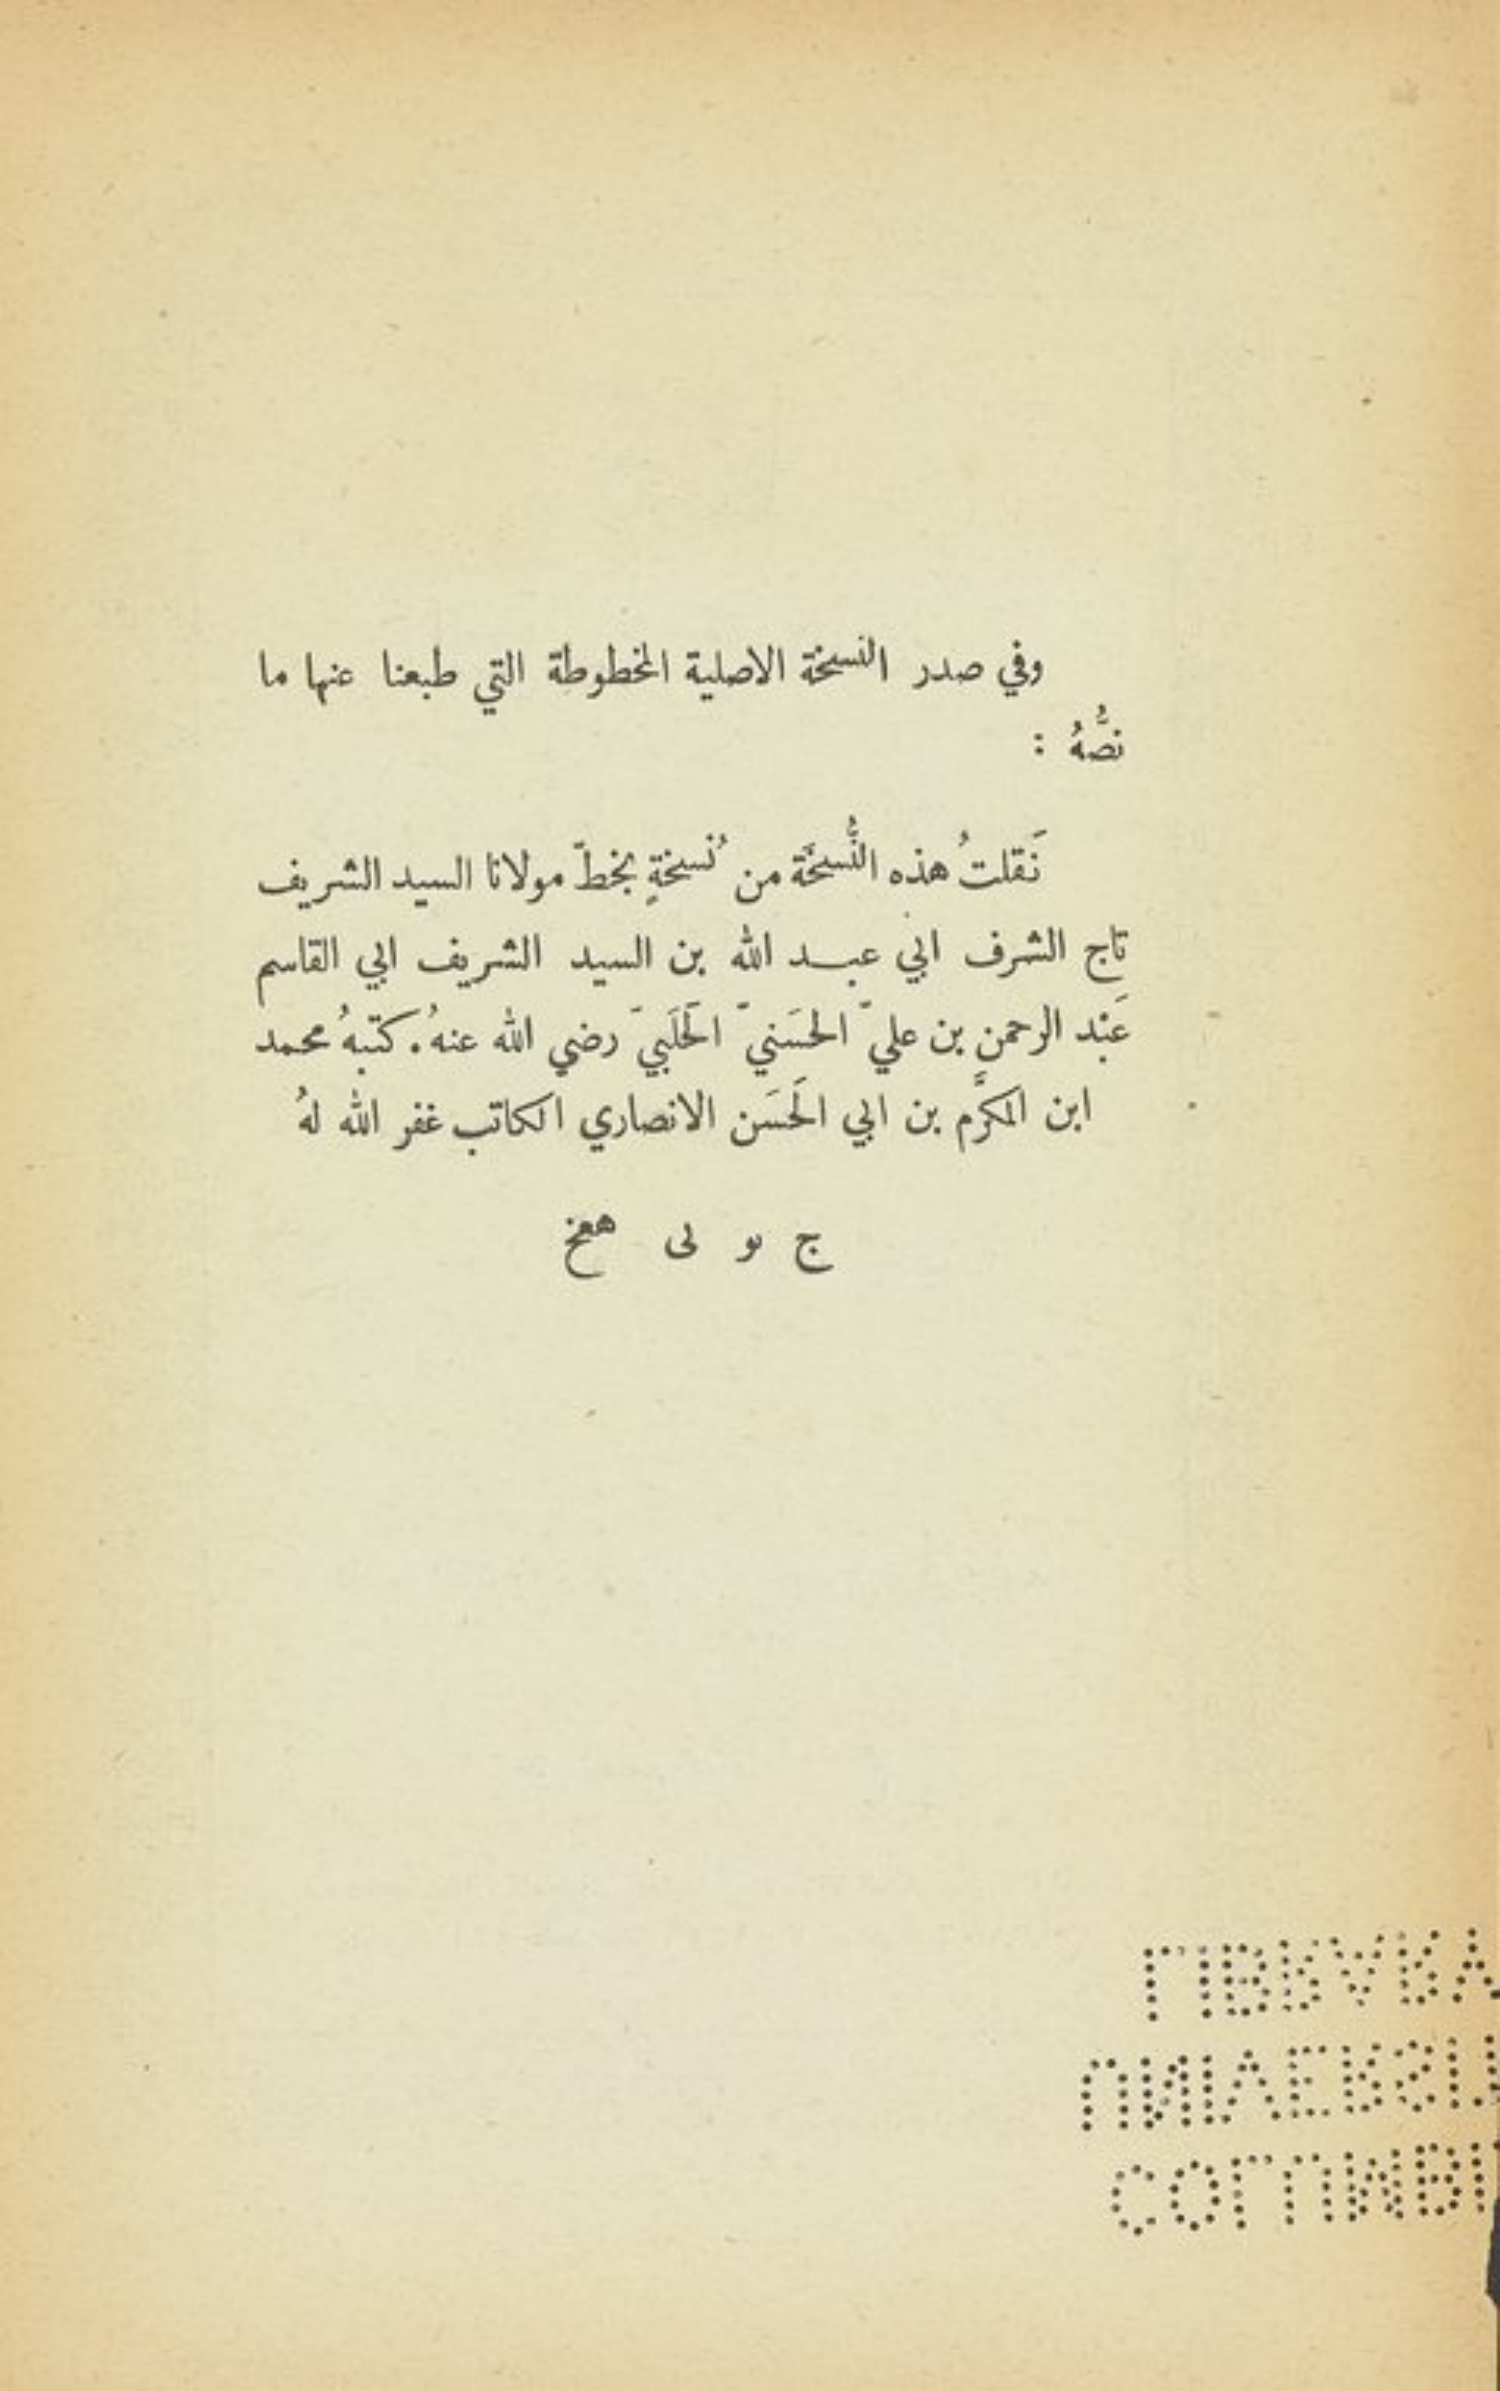 وفي صدر النسخة الاصلية المخطوطة التي طبعنا عنها ما
نصُّهُ :
نَقلتُ هذه النُّسخَة من نُسخةٍ بخطّ مولانا السيد الشريف
تاج الشرف ابي عبد الله بن السيد الشريف ابي القاسم
عَبْد الرحمن بن عليّ الحسَنيّ الحَلَبيّ رضي الله عنهُ. كتبهُ محمد
ابن المكرَّم بن ابي الحَسَن الانصاري الكاتب غفر الله لهُ
ج